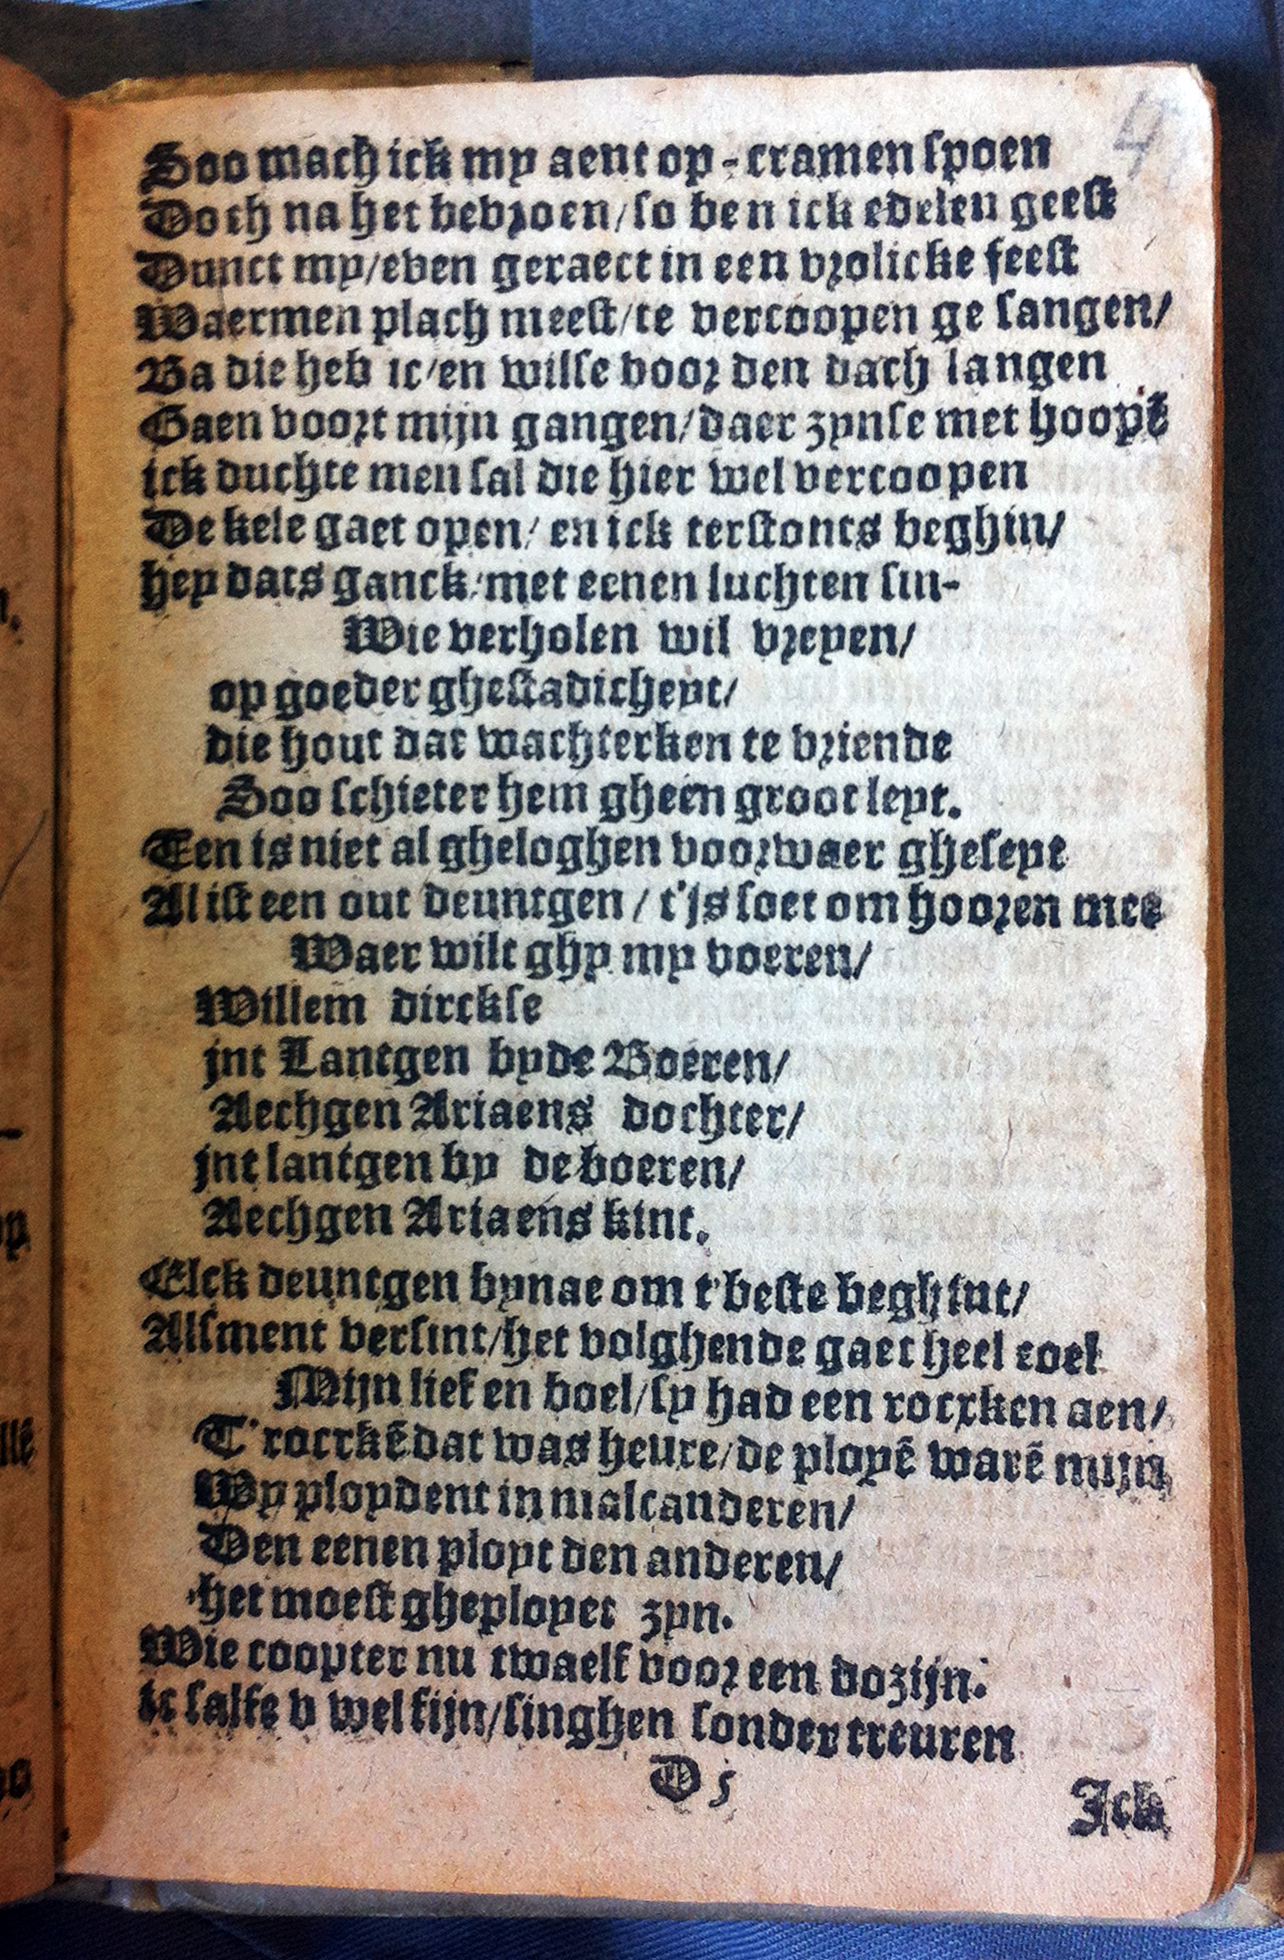 Soo mach ick my aent op-cramen spoen
Doch na het bevroen/so ben ick edelen geest
Dunct my/even geraect in een vrolicke feest
Waermen plach meest/te vercoopen ge sangen/
Ba die heb ic/en wilse voor den dach langen
Gaen voort mijn gangen/daer zynse met hoopẽ
ick duchte men sal die hier wel vercoopen
De kele gaet open/ en ick terstonts beghin/
hey dats ganck/met eenen luchten sin-
Wie verholen wil vreyen/
op goeder ghestadicheyt/
die hout dat wachterken te vriende
Soo schieter hem gheen groot leyt.
Ten is niet al gheloghen voorwaer gheseyt
Al ist een out deuntgen / t'js soet om hooren mee
Waer wilt ghy my voeren/
Willem dirckse
jnt Lantgen byde Boeren/
Aechgen Ariaens dochter/
jnt lantgen by de boeren/
Aechgen Ariaens kint.
Elck deuntgen bynae om t'beste beghint/
Alsment versint/het volghende gaet heel coel
Mijn lief en boel/sy had een rocxken aen/
T'rocxkẽ dat was heure/de ployẽ warẽ mijn,
Wy ploydent in malcanderen/
Den eenen ployt den anderen/
het moest gheployet zyn.
Wie coopter nu twaelf voor een dozijn.
ic salse v wel fijn/singhen sonder treuren
D 5
Ick